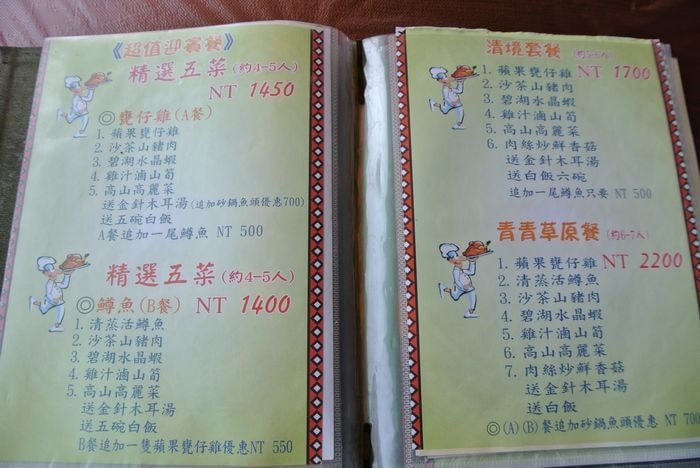 《超值迎賓餐》
精選五菜(約4-5人)
NT 1450
◎甕仔雞(A餐)
1. 蘋果甕仔雞
2. 沙茶山豬肉
3. 碧湖水晶蝦
4. 雞汁滷山筍
5. 高山高麗菜
送金針木耳湯(追加砂鍋魚頭優惠700)
送五碗白飯
A餐追加一尾鱒魚 NT 500
精選五菜(約4-5人)
◎鱒魚(B餐) NT 1400
1. 清蒸活鱒魚
2. 沙茶山豬肉
3. 碧湖水晶蝦
4. 雞汁滷山筍
5. 高山高麗菜
送金針木耳湯
送五碗白飯
B餐追加一隻蘋果甕仔雞優惠NT 550
清境套餐
1. 蘋果甕仔雞 NT 1700
2. 沙茶山豬肉
3. 碧湖水晶蝦
4. 雞汁滷山筍
5. 高山高麗菜
6. 肉絲炒鮮香菇
送金針木耳湯
送白飯六碗
追加一尾鱒魚只要 NT 500
青青草原餐 (約6-7人)
1. 蘋果甕仔雞 NT 2200
2. 清蒸活鱒魚
3. 沙茶山豬肉
4. 碧湖水晶蝦
5. 雞汁滷山筍
6. 高山高麗菜
7. 肉絲炒鮮香菇
送金針木耳湯
送白飯
◎(A)(B)餐追加砂鍋魚頭優惠 NT 700